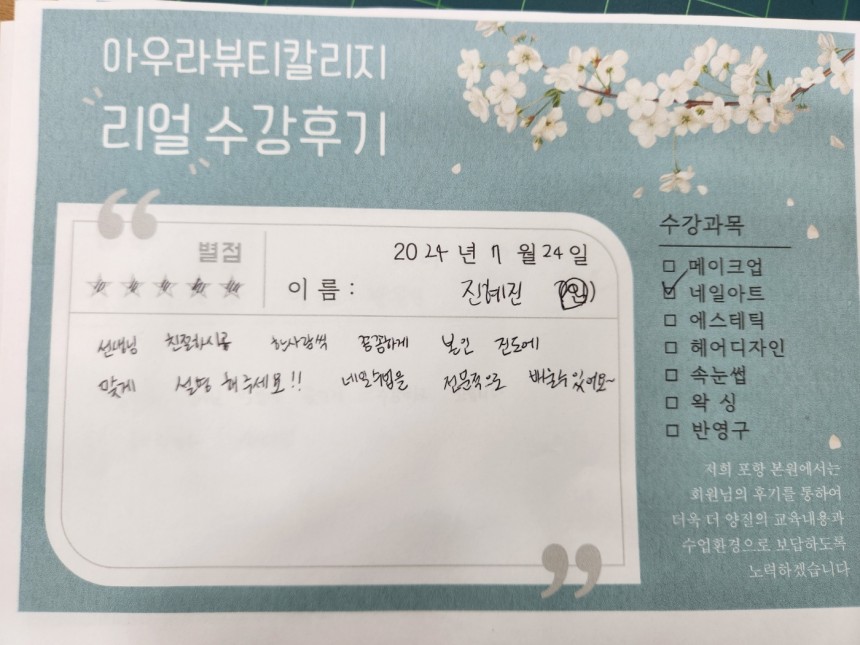 아우라뷰티칼리지
리얼 수강후기
별점
2024년 7월 24일
이름: 진혜진 (인)
선생님 친절하시공 한사람씩 꼼꼼하게 본인 진도에
맞게 설명 해주세요!! 네일수업을 전문적으로 배울수있어요~
수강과목
□ 메이크업
☑ 네일아트
□ 에스테틱
□ 헤어디자인
□ 속눈썹
□ 왁싱
□ 반영구
저희 포항 본원에서는
회원님의 후기를 통하여
더욱 더 양질의 교육내용과
수업환경으로 보답하도록
노력하겠습니다